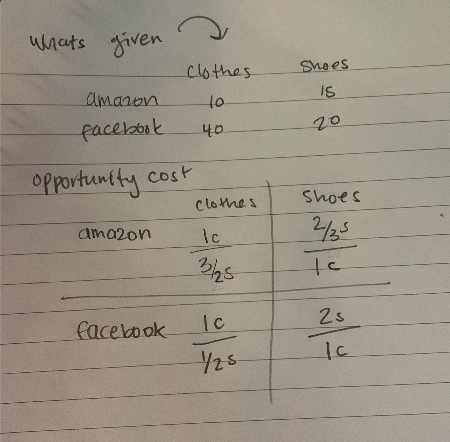 whats given
clothes shoes
amazon 10 15
facebook 40 20
opportunity cost
clothes shoes
amazon 1c 2/3s
3/2s 1c
facebook 1c 2s
1/2s 1c